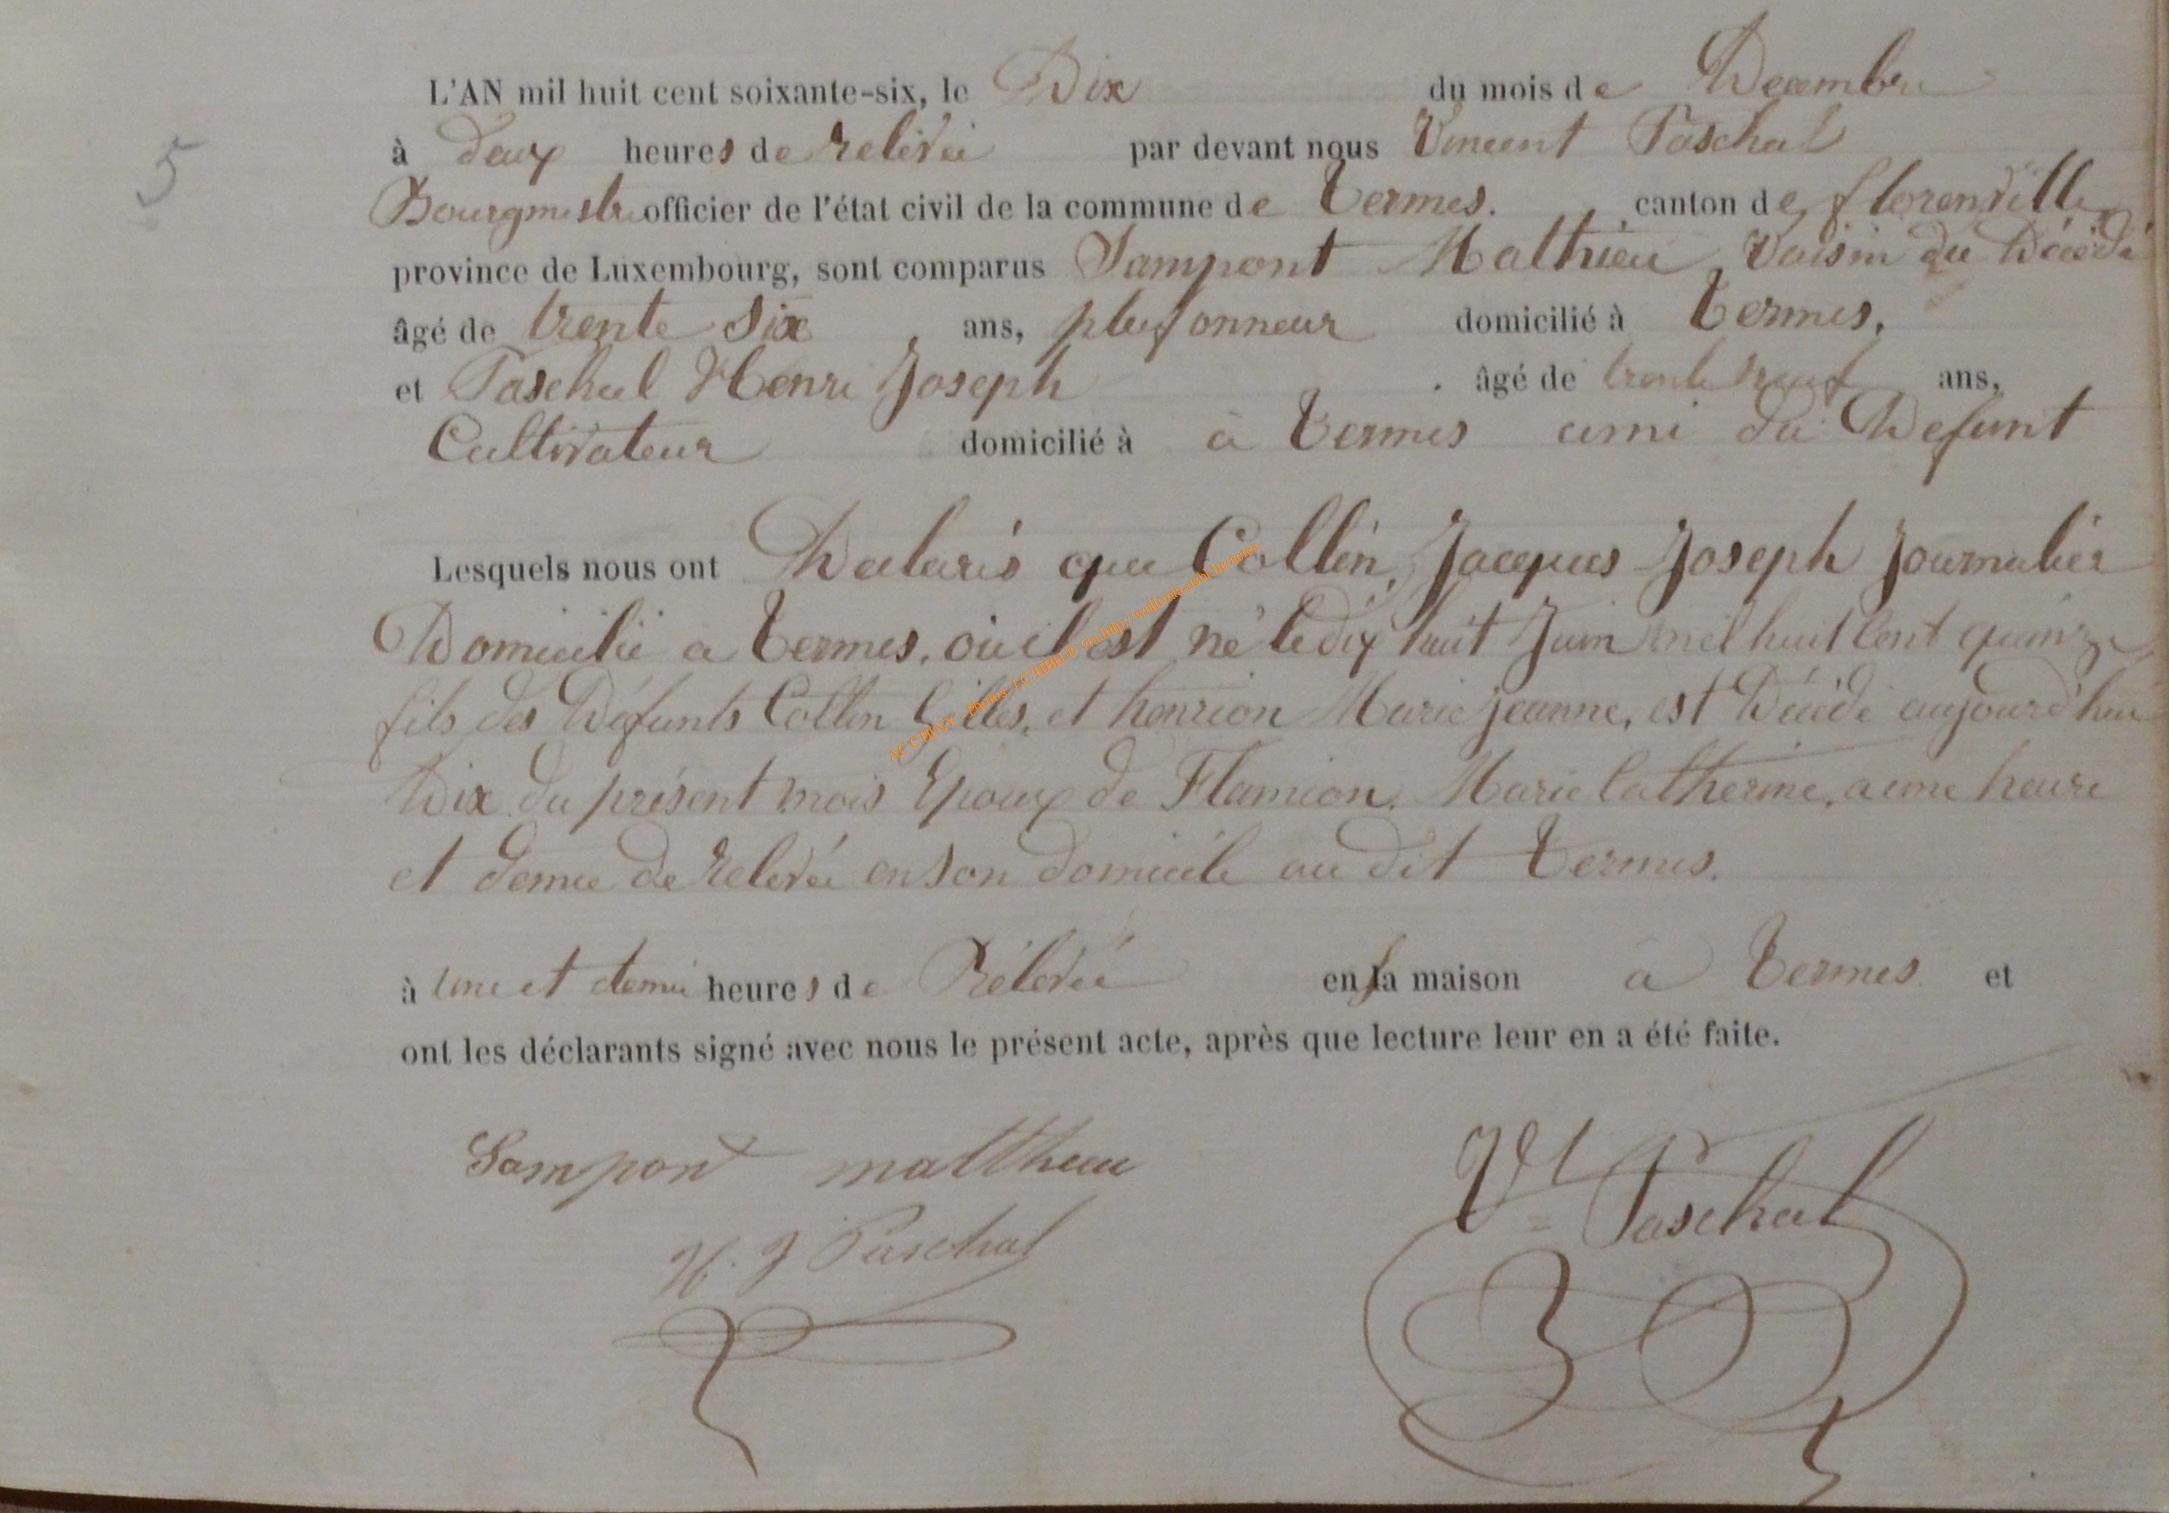 L'AN mil huit cent soixante-six, le Dix du mois de Decembre
5
à deux heures de relévée par devant nous Vincent Paschal
Bourgmestre officier de l'état civil de la commune de Termes. canton de florenville
province de Luxembourg, sont comparus Sampont Mathieu, Voisin du Décédé
âgé de trente six ans, plafonneur domicilié à Termes,
et Paschal Henri Joseph âgé de trente neuf ans,
Cultivateur domicilié à à Termes ami du Defunt
Lesquels nous ont Declarés que Collin, Jacques Joseph Journalier
Domicilié a Termes. où il est né le dix huit Juin mil huit Cent quinze
fils des Défunts Collin Gilles, et henrion Marie jeanne, est Décédé aujourd'hui
Dix du présent mois Epoux de Flamion. Marie Catherine, a une heure
et demie de relevée en son domicile au dit Termes.
ACCHINY - Photos J.C.HIBLE via http://wallonie-asbl.be/actes
à une et demie heures de Rélevée en sa maison à Termes et
ont les déclarants signé avec nous le présent acte, après que lecture leur en a été faite.
Sampont matthieu
Vt Paschal
H. J Paschal